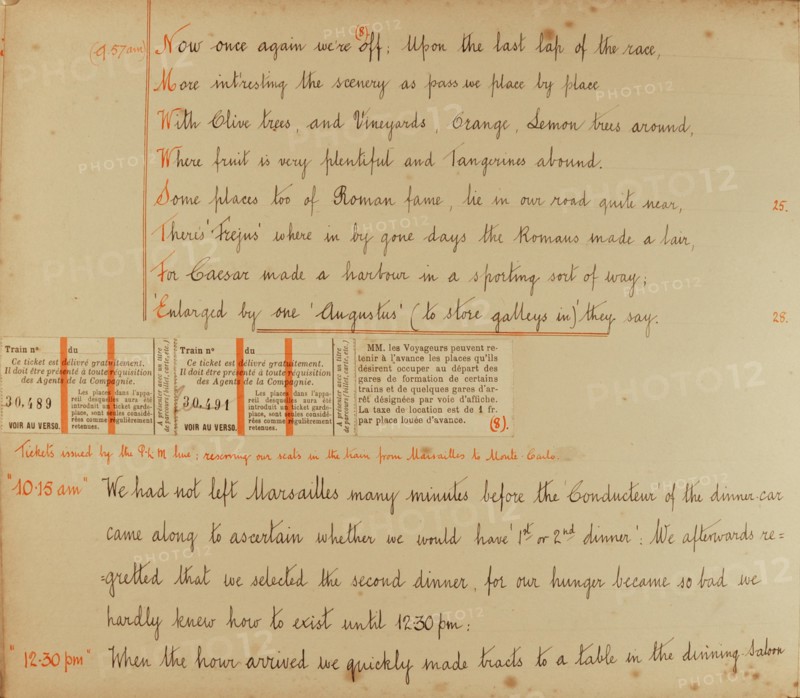 (9.57am) Now once again we're off; Upon the last lap of the race, (8)
More int'resting the scenery as pass we place by place
With Olive trees, and Vineyards, Orange, Lemon trees around,
Where fruit is very plentiful and Tangerines abound.
Some places too of Roman fame, lie in our road quite near, 25.
Theris 'Frejus' where in by gone days the Romans made a lair,
For Caesar made a harbour in a sporting sort of way;
'Enlarged by one 'Augustus' (to store galleys in)' they say. 28.
Train nº du
Ce ticket est délivré gratuitement.
Il doit être présenté à toute réquisition
des Agents de la Compagnie.
30.489
VOIR AU VERSO.
Les places dans l'appa-
reil desquelles aura été
introduit un ticket garde-
place, sont seules considé-
rées comme régulièrement
retenues.
A présenter avec un titre
de parcours (billet, carte, etc.)
Train nº du
Ce ticket est délivré gratuitement.
Il doit être présenté à toute réquisition
des Agents de la Compagnie.
30.491
VOIR AU VERSO.
Les places dans l'appa-
reil desquelles aura été
introduit un ticket garde-
place, sont seules considé-
rées comme régulièrement
retenues.
A présenter avec un titre
de parcours (billet, carte, etc.)
MM. les Voyageurs peuvent re-
tenir à l'avance les places qu'ils
désirent occuper au départ des
gares de formation de certains
trains et de quelques gares d'ar-
rêt désignées par voie d'affiche.
La taxe de location est de 1 fr.
par place louée d'avance. (8).
Tickets issued by the P.L.M line; reserving our seats in the train from Marsailles to Monte-Carlo.
"10·15 am" We had not left Marsailles many minutes before the 'Conducteur of the dinner-car
came along to ascertain whether we would have '1st or 2nd dinner': We afterwards re=
=gretted that we selected the second dinner, for our hunger became so bad we
hardly knew how to exist until 12·30 pm:
"12·30 pm" When the hour arrived we quickly made tracts to a table in the dinning-Saloon
PHOTO12